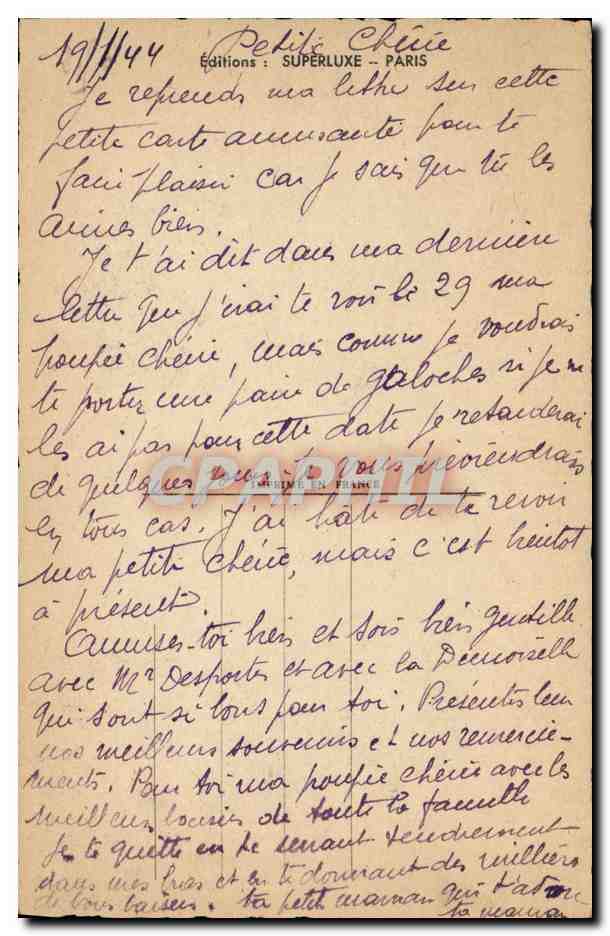 19/1/44 Petite Chérie
Éditions : SUPERLUXE -- PARIS
Je reprends ma lettre sur cette
petite carte amusante pour te
faire plaisir car je sais que tu les
aimes bien.
Je t'ai dit dans ma dernière
lettre que j'irai te voir le 29 ma
poupée chérie, mais comme je voudrais
te porter une paire de galoches si je ne
les ai pas pour cette date je retarderai
de quelques jours. Je vous préviendrais
IMPRIMÉ EN FRANCE
CPAPHIL
en tous cas. J'ai hâte de te revoir
ma petite chérie, mais c'est bientot
à présent.
Amuses-toi bien et sois bien gentille
avec Mr Desportes et avec la Demoiselle
qui sont si bons pour toi. Présentes leur
nos meilleurs souvenirs et nos remercie-
ments. Pour toi ma poupée chérie avec les
meilleurs baisers de toute la famille
je te quitte en te serrant tendrement
dans mes bras et en te donnant des milliers
de bons baisers. Ta petit maman qui t'adore
ta maman